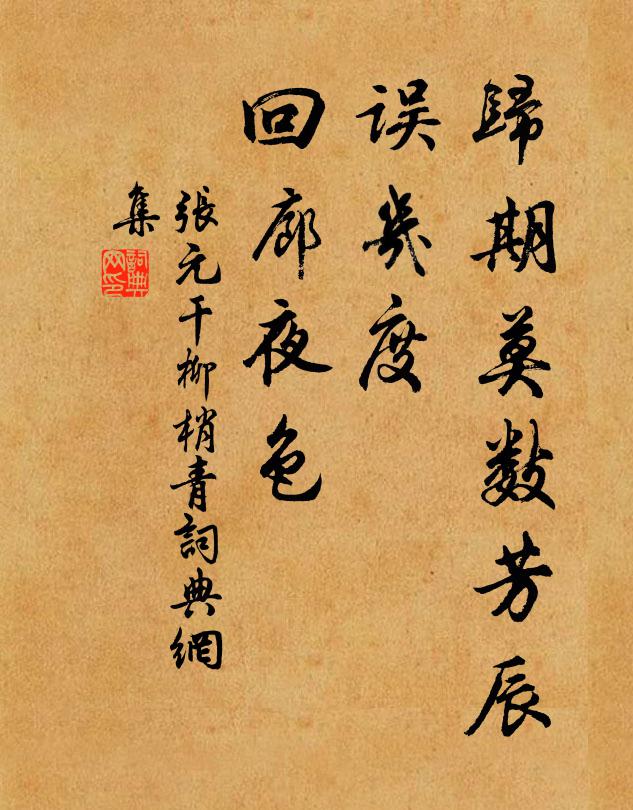 歸期莫數芳辰
誤幾度
回廊夜色
張元干柳梢青詞典網
集
詞典
网印